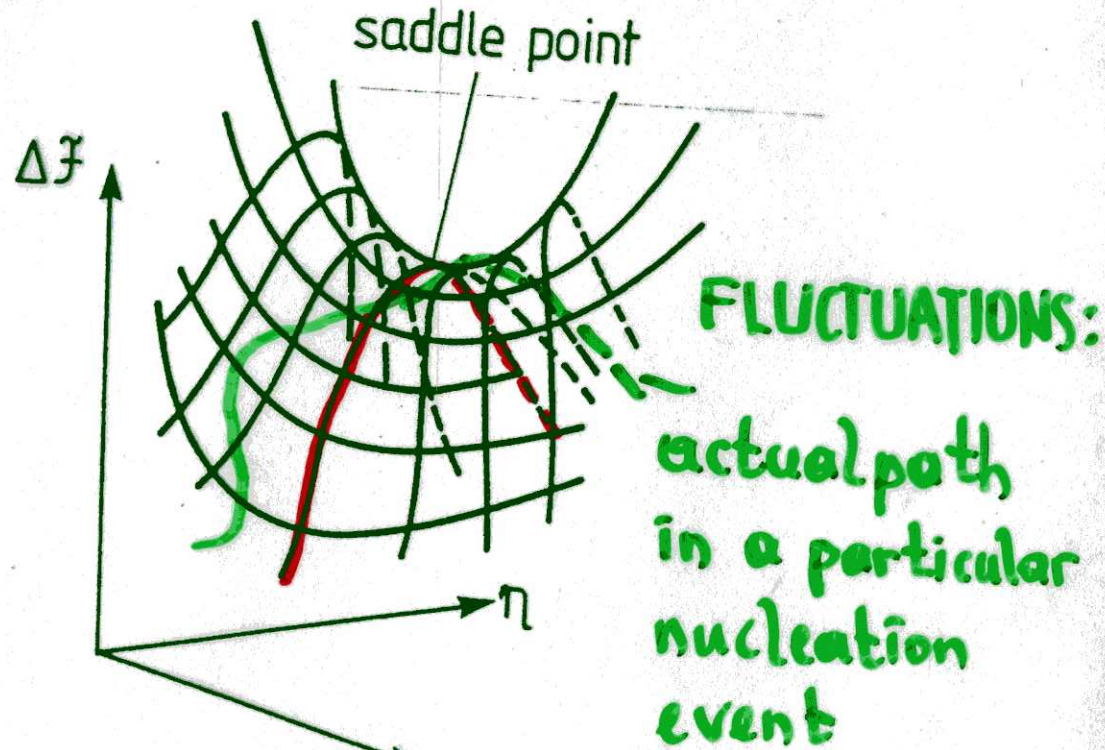 saddle point
Δℱ
FLUCTUATIONS:
actual path
in a particular
nucleation
event
η